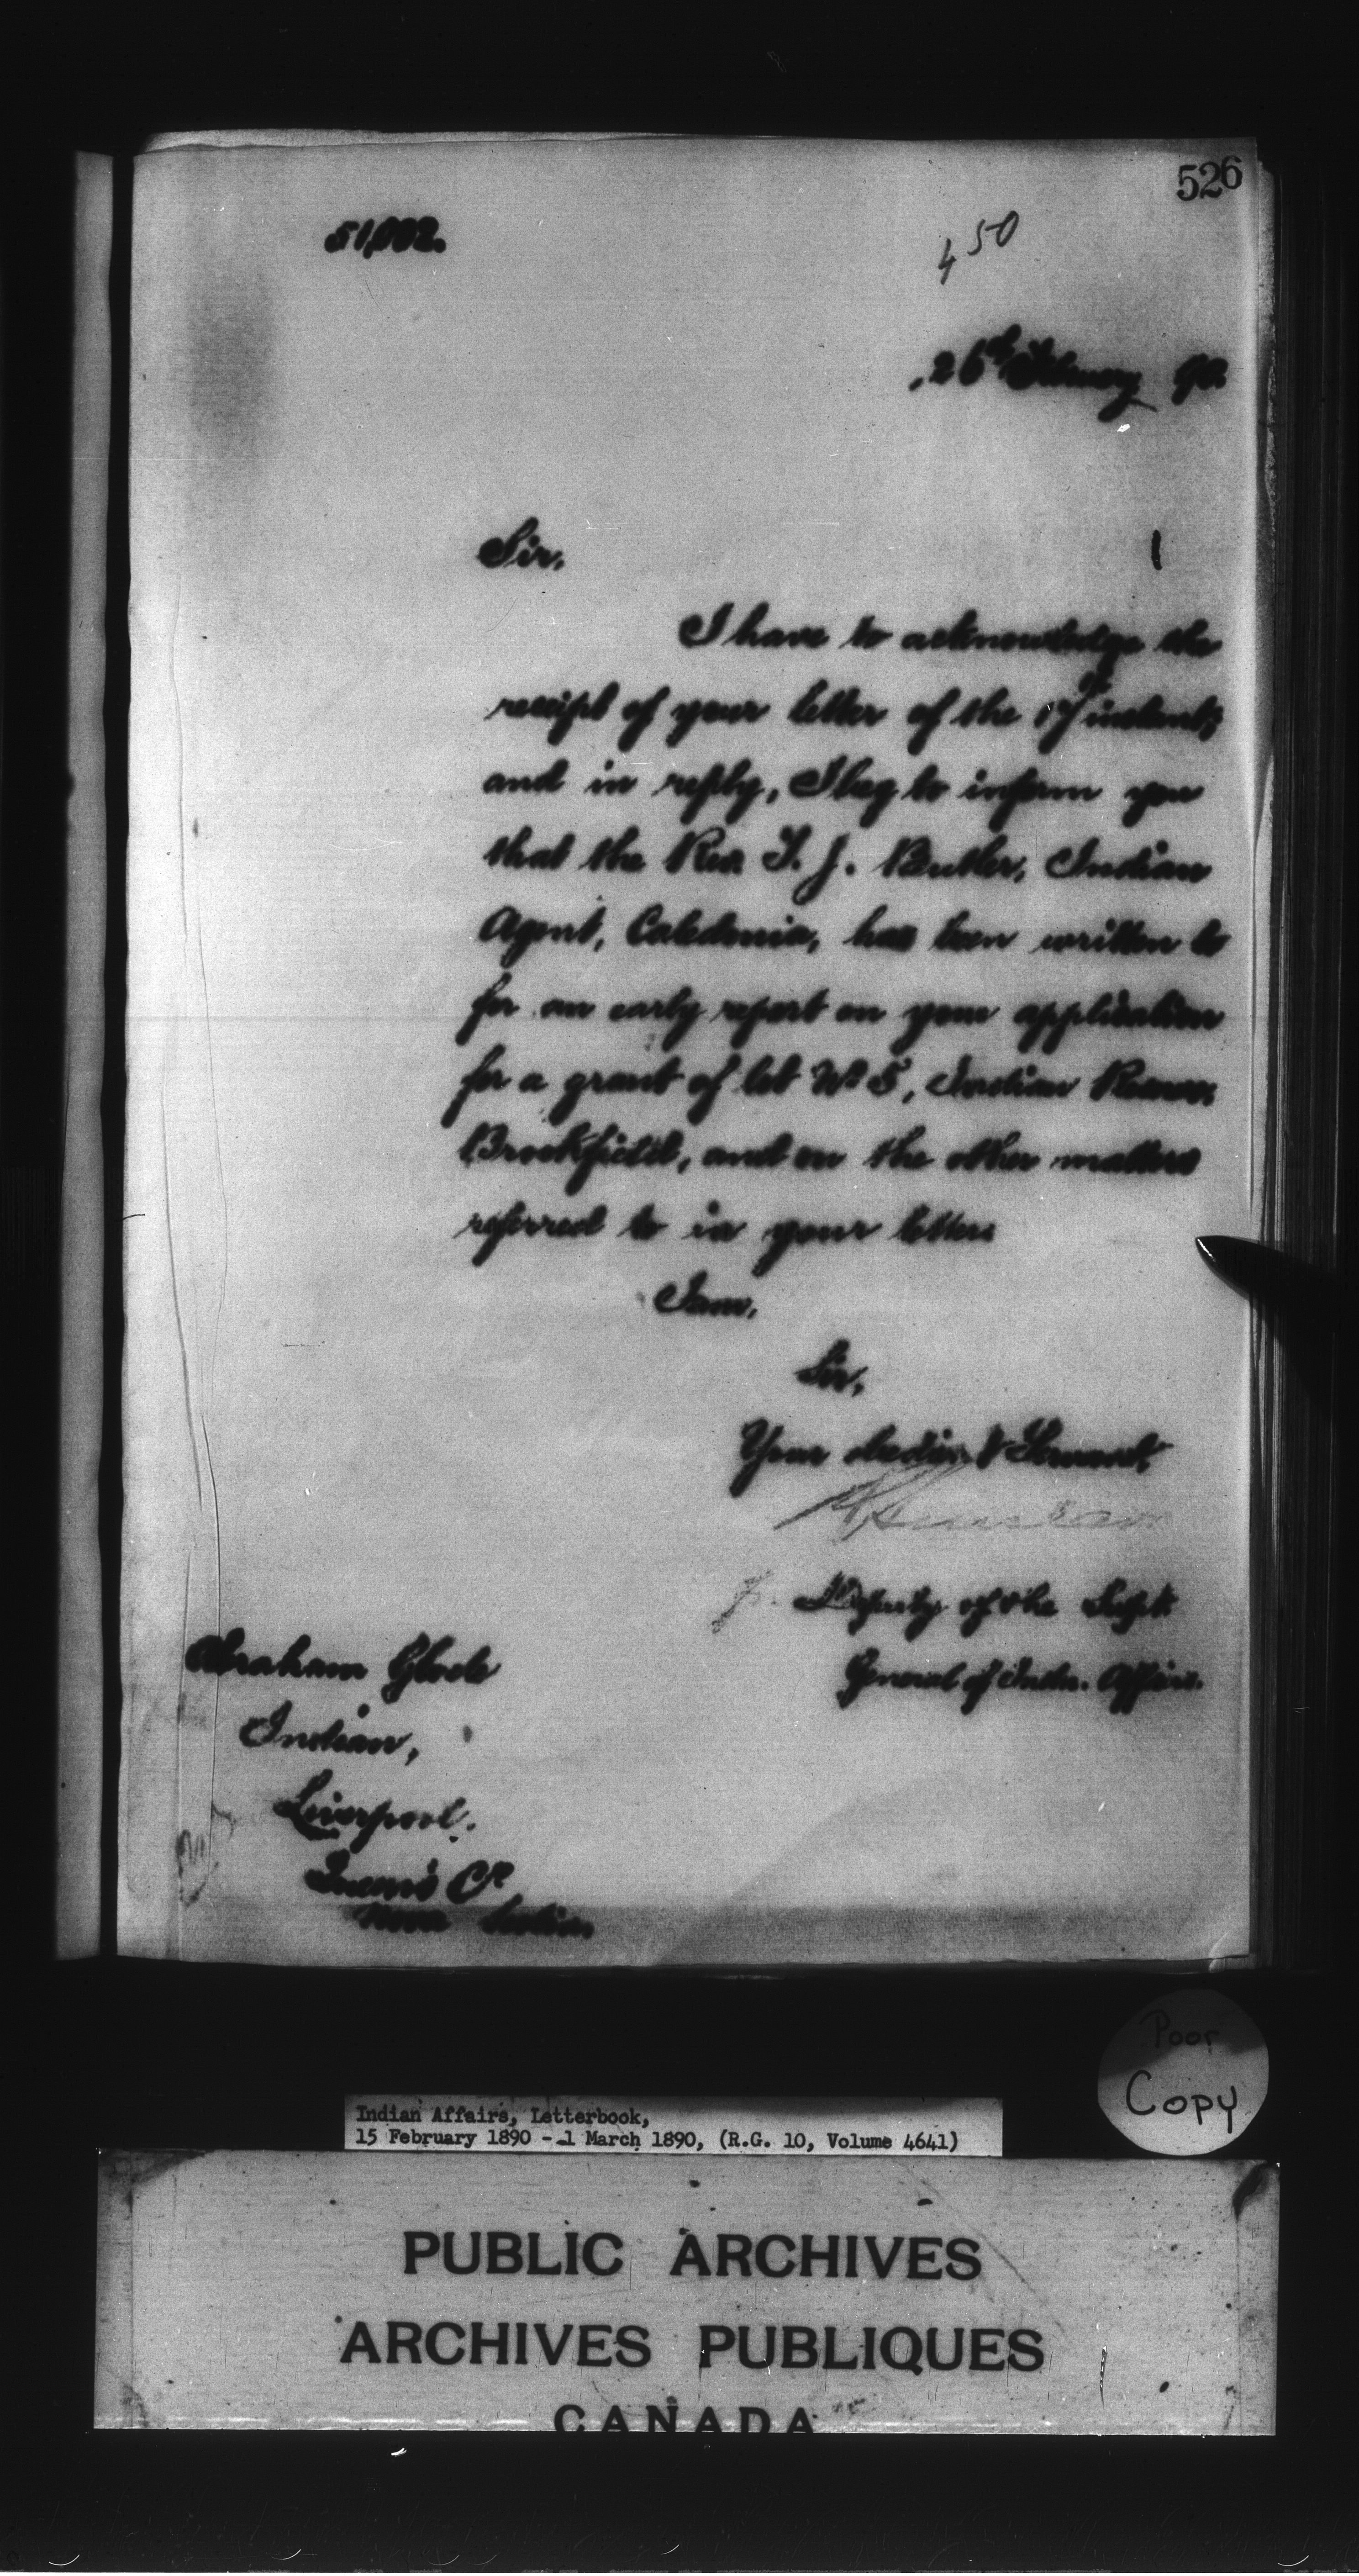 526
51,002.
450
26th February 90.
Sir,
I have to acknowledge the
receipt of your letter of the 17th instant,
and in reply, I beg to inform you
that the Rev. T. J. Butler, Indian
Agent, Caledonia, has been written to
for an early report on your application
for a grant of lot No 5, Indian Reserve,
Brookfield, and on the other matters
referred to in your letter.
I am,
Sir,
Your obedient Servant,
Deputy of the Supt.
General of Indn. Affairs.
Abraham Glode
Indian,
Liverpool.
Queen's Co
Nova Scotia
Poor
Copy
Indian Affairs, Letterbook,
15 February 1890 - 1 March 1890, (R.G. 10, Volume 4641)
PUBLIC ARCHIVES
ARCHIVES PUBLIQUES
CANADA